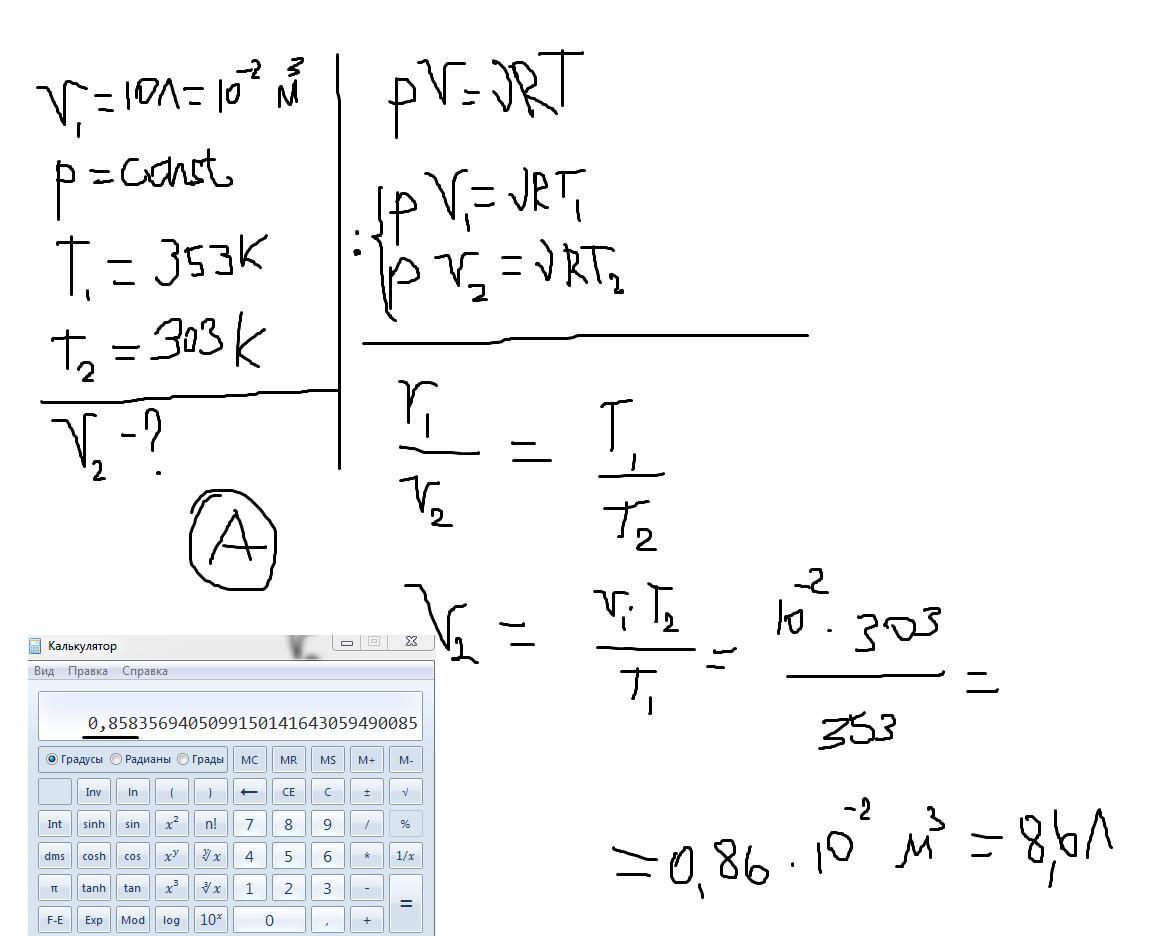 V₁ = 10л = 10⁻² м³
p = const
T₁ = 353K
T₂ = 303K
V₂ - ?
A
pV = νRT
: { pV₁ = νRT₁
pV₂ = νRT₂
V₁/V₂ = T₁/T₂
V₂ = V₁·T₂/T₁ = 10⁻²·303/353 =
= 0,86 · 10⁻² м³ = 8,6л
Калькулятор
Вид Правка Справка
0,8583569405099150141643059490085
Градусы Радианы Грады MC MR MS M+ M-
Inv ln ( ) ← CE C ± √
Int sinh sin x² n! 7 8 9 / %
dms cosh cos xʸ ʸ√x 4 5 6 * 1/x
π tanh tan x³ ³√x 1 2 3 - =
F-E Exp Mod log 10ˣ 0 , +